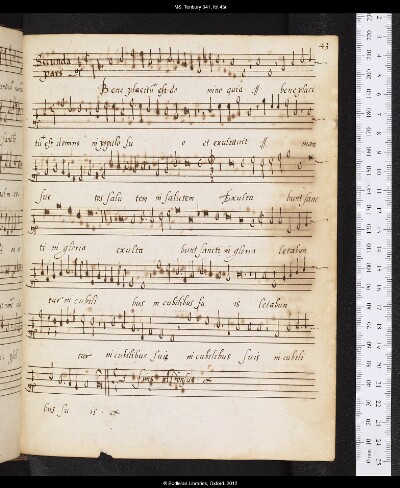 MS. Tenbury 341, fol.43r
43
Secunda
pars
Bene placitū est do mino quia ij bene placi
tū est domino in populo su o et exultavit ij man
sue tos in salu tem in salutem Exulta bunt sanc
ti in gloria exulta bunt sancti in gloria letabun
tur in cubili bus in cubilibus su is letabun
tur in cubilibus suis in cubilibus suis in cubili
bus su is
© Bodleian Libraries, Oxford, 2012